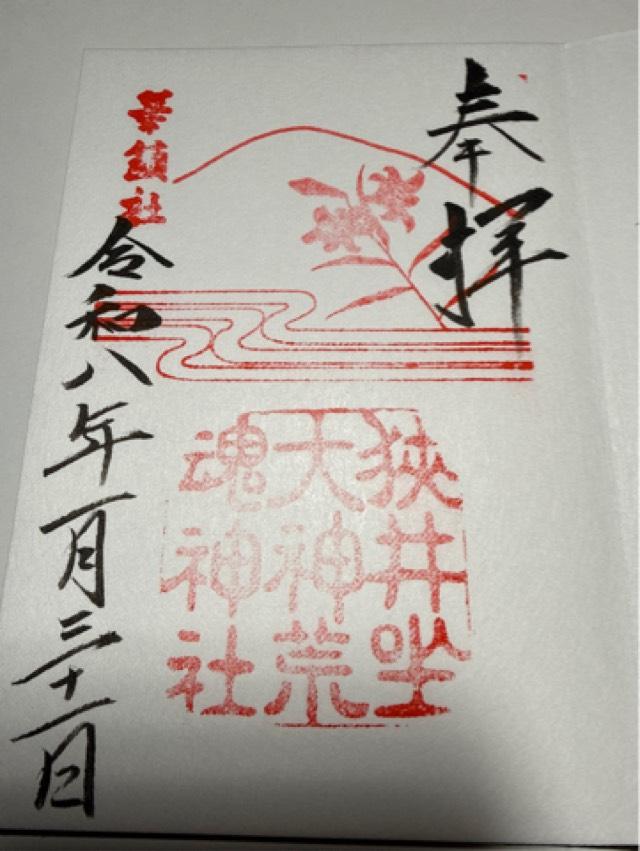 奉拝
狭井坐
大神荒
魂神社
華鎮社
令和八年一月三十一日